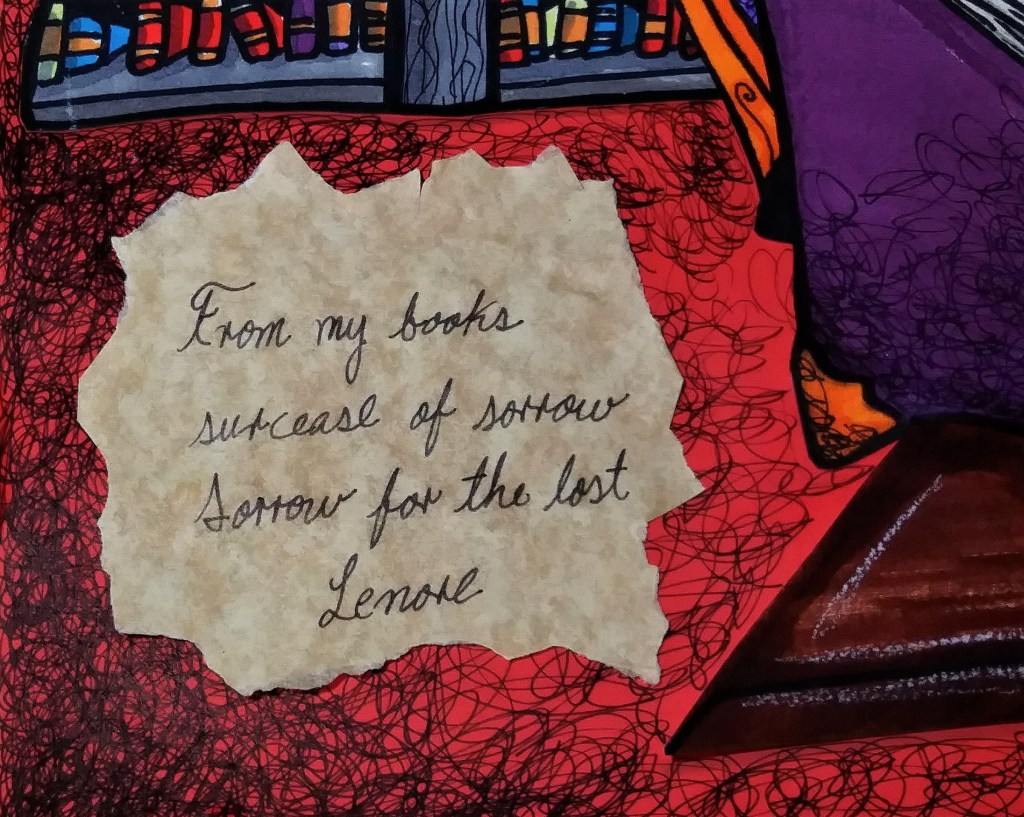 From my books
surcease of sorrow
Sorrow for the lost
Lenore